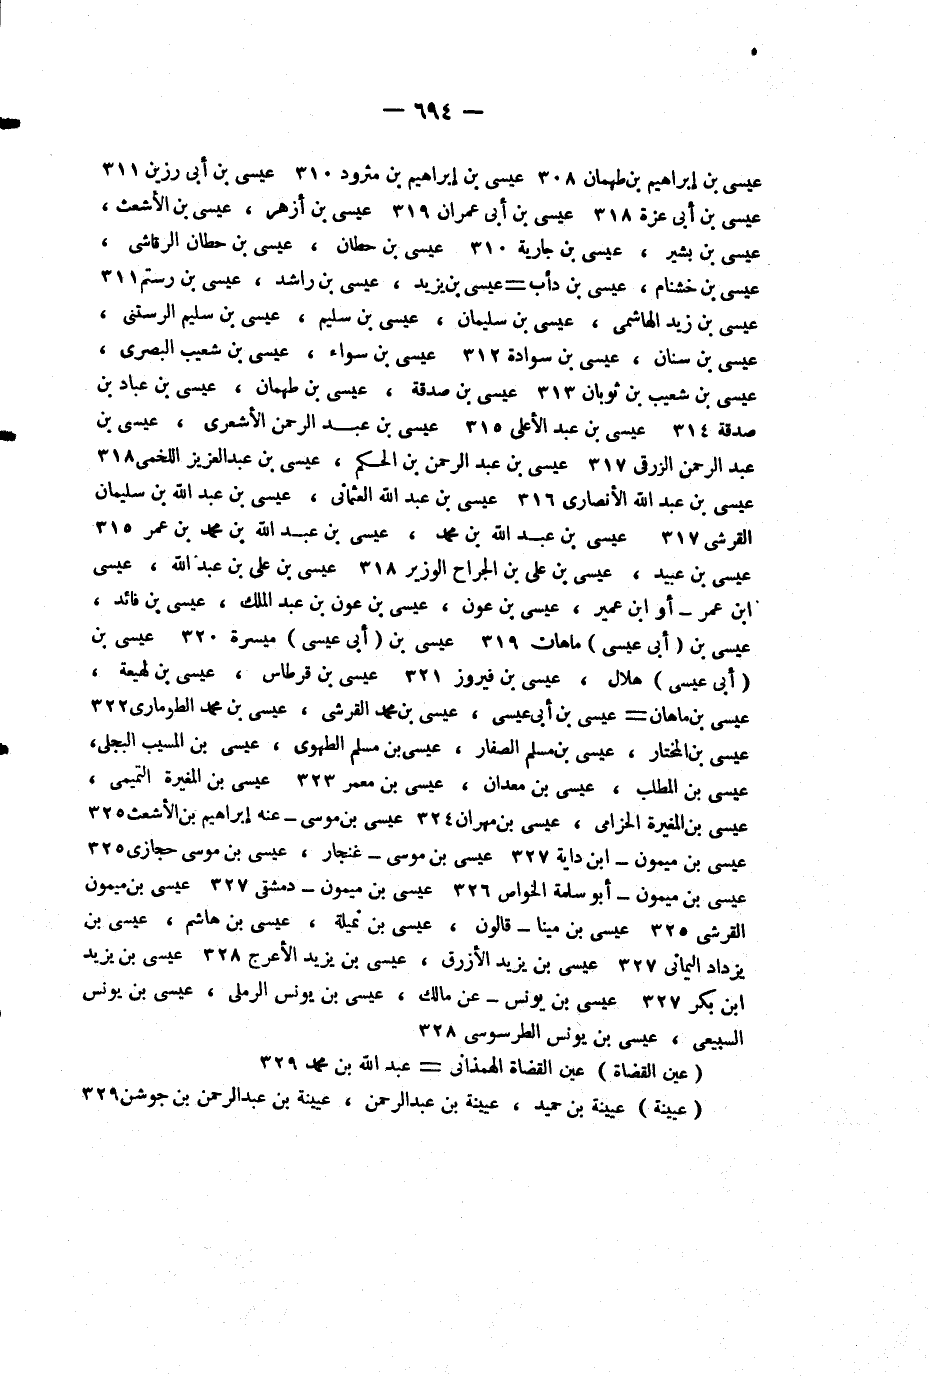 — ٦٩٤ —
عيسى بن إبراهيم بن طهمان ٣٠٨ عيسى بن إبراهيم بن مثرود ٣١٠ عيسى بن أبى رزين ٣١١
عيسى بن أبى عزة ٣١٨ عيسى بن أبى عمران ٣١٩ عيسى بن أزهر ، عيسى بن الأشعث ،
عيسى بن بشير ، عيسى بن جارية ٣١٠ عيسى بن حطان ، عيسى بن حطان الرقاشى ،
عيسى بن خشنام ، عيسى بن دأب = عيسى بن يزيد ، عيسى بن راشد ، عيسى بن رستم ٣١١
عيسى بن زيد الهاشمى ، عيسى بن سليمان ، عيسى بن سليم ، عيسى بن سليم الرستنى ،
عيسى بن سنان ، عيسى بن سوادة ٣١٢ عيسى بن سواء ، عيسى بن شعيب البصرى ،
عيسى بن شعيب بن ثوبان ٣١٣ عيسى بن صدقة ، عيسى بن طهمان ، عيسى بن عباد بن
صدقة ٣١٤ عيسى بن عبد الأعلى ٣١٥ عيسى بن عبـــد الرحمن الأشعرى ، عيسى بن
عبد الرحمن الزرقى ٣١٧ عيسى بن عبد الرحمن بن الحـكم ، عيسى بن عبدالعزيز اللخمى ٣١٨
عيسى بن عبد الله الأنصارى ٣١٦ عيسى بن عبد الله العثمانى ، عيسى بن عبد الله بن سليمان
القرشى ٣١٧ عيسى بن عبــد الله بن محمد ، عيسى بن عبــد الله بن محمد بن عمر ٣١٥
عيسى بن عبيد ، عيسى بن على بن الجراح الوزير ٣١٨ عيسى بن على بن عبد الله ، عيسى
ابن عمر – أو ابن عمير ، عيسى بن عون ، عيسى بن عون بن عبد الملك ، عيسى بن فائد ،
عيسى بن ( أبى عيسى ) ماهات ٣١٩ عيسى بن ( أبى عيسى ) ميسرة ٣٢٠ عيسى بن
( أبى عيسى ) هلال ، عيسى بن فيروز ٣٢١ عيسى بن قرطاس ، عيسى بن لهيعة ،
عيسى بن ماهان = عيسى بن أبى عيسى ، عيسى بن محمد القرشى ، عيسى بن محمد الطومارى ٣٢٢
عيسى بن المختار ، عيسى بن مسلم الصفار ، عيسى بن مسلم الطهوى ، عيسى بن المسيب البجلى،
عيسى بن المطلب ، عيسى بن معدان ، عيسى بن معمر ٣٢٣ عيسى بن المغيرة التميمى ،
عيسى بن المغيرة الحزامى ، عيسى بن مهران ٣٢٤ عيسى بن موسى – عنه إبراهيم بن الأشعث ٣٢٥
عيسى بن ميمون – ابن داية ٣٢٧ عيسى بن موسى – غنجار ، عيسى بن موسى حجازى ٣٢٥
عيسى بن ميمون – أبو سلمة الخواص ٣٢٦ عيسى بن ميمون – دمشقى ٣٢٧ عيسى بن ميمون
القرشى ٣٢٥ عيسى بن مينا – قالون ، عيسى بن نميلة ، عيسى بن هاشم ، عيسى بن
يزداد اليمانى ٣٢٧ عيسى بن يزيد الأزرق ، عيسى بن يزيد الأعرج ٣٢٨ عيسى بن يزيد
ابن بكر ٣٢٧ عيسى بن يونس – عن مالك ، عيسى بن يونس الرملى ، عيسى بن يونس
السبيعى ، عيسى بن يونس الطرسوسى ٣٢٨
( عين القضاة ) عين القضاة الهمذانى = عبد الله بن محمد ٣٢٩
( عيينة ) عيينة بن حميد ، عيينة بن عبدالرحمن ، عيينة بن عبدالرحمن بن جوشن ٣٢٩